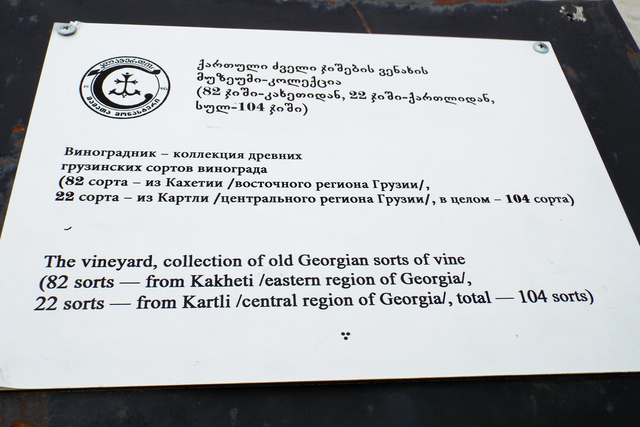 ალავერდის
მამათა მონასტერი
ქართული ძველი ჯიშების ვენახის
მუზეუმი-კოლექცია
(82 ჯიში-კახეთიდან, 22 ჯიში-ქართლიდან,
სულ-104 ჯიში)
Виноградник – коллекция древних
грузинских сортов винограда
(82 сорта – из Кахетии /восточного региона Грузии/,
22 сорта – из Картли /центрального региона Грузии/, в целом – 104 сорта)
The vineyard, collection of old Georgian sorts of vine
(82 sorts — from Kakheti /eastern region of Georgia/,
22 sorts — from Kartli /central region of Georgia/, total — 104 sorts)